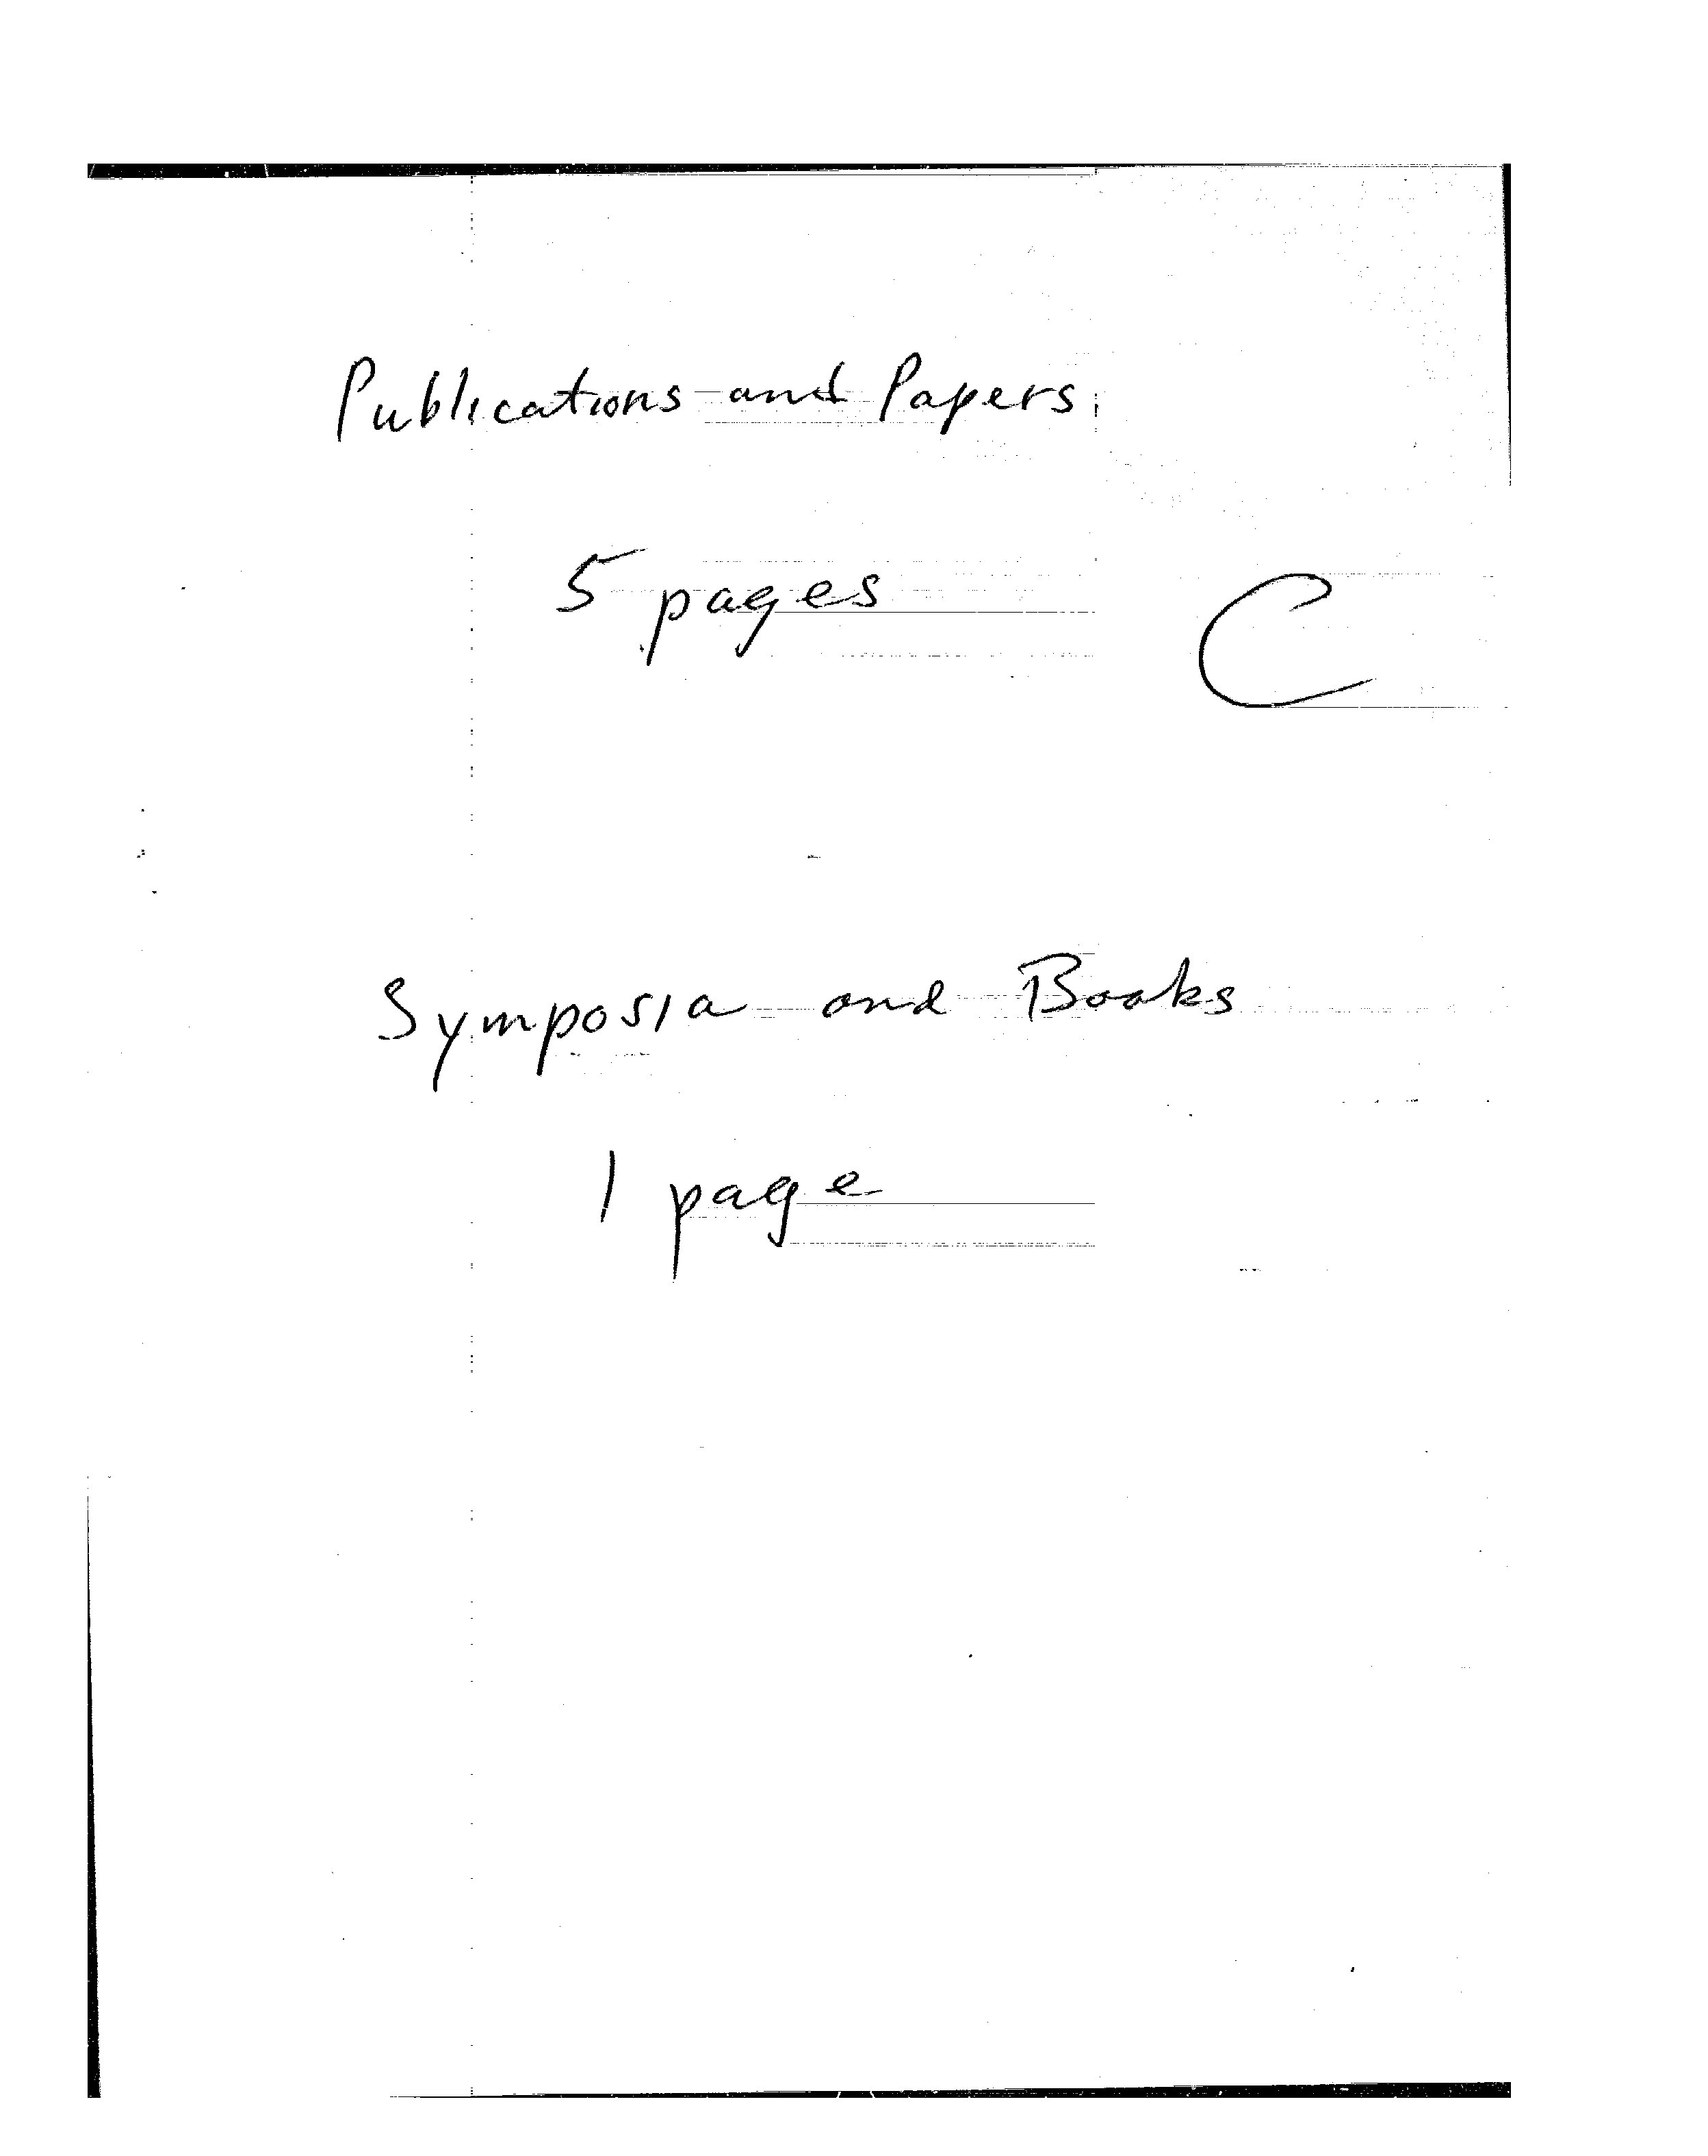 Publications and Papers
5 pages
C
Symposia and Books
1 page